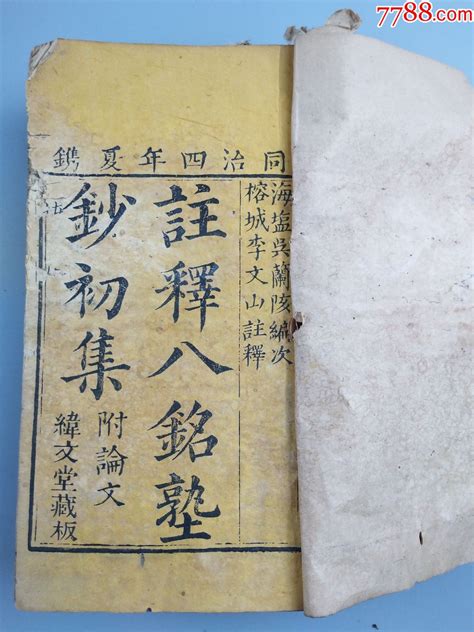 7788.com
同治四年夏鐫
海塩吳蘭陔編次
榕城李文山註釋
註釋八銘塾
鈔初集
附論文
緯文堂藏板